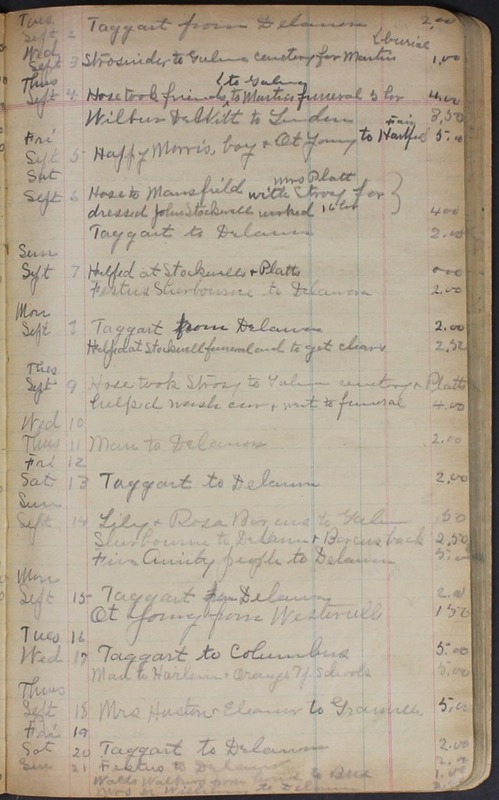 Tues
Sept 2 Taggart from Delaware 2.00
Wed burial
Sept 3 Strosnider to Galena cemetery for Martin 1.00
Thus to Galena
Sept 4 Hose took friends to Martins funeral 3 hr 4.00
Wilbur DeWitt to Linden 3,50
Fri Fair
Sept 5 Happy Morris, boy + Ot Young to Hartford 5.00
Sat Mrs Platt
Sept 6 Hose to Mansfield with Stros for
dressed John Stockwell worked 16 hr 400
Taggart to Delaware 2.00
Sun
Sept 7 Helped at Stockwells + Platts
Festus Sherbourne to Delaware 2.00
Mon
Sept Taggart from Delaware 2.00
Helped at Stockwell funeral and to get chairs 2,50
Tus
Sept 9 Hose took Stros to Galena cemetery + Platts
helped wash car + went to funeral 4.00
Wed 10
Thus 11 Man to Delaware 2.00
Fri 12
Sat 13 Taggart to Delaware 2,00
Sun
Sept 14 Lily + Rosa to Galena 50
Sherbourne to Delaware + back 2,50
Five Amity people to Delaware 5.00
Mon
Sept 15 Taggart Delaware 2.00
Ot Young from Westerville 150
Tues 16
Wed 17 Taggart to Columbus 5.00
Man to Harlem + Orange Tp. Schools 5.00
Thus
Sept 18 Mrs Huston + Eleanor to Granville 5,00
Fri 19
Sat 20 Taggart to Delaware 2.00
Sun 21 Festus to Delaware
from to
Mrs to Delaware